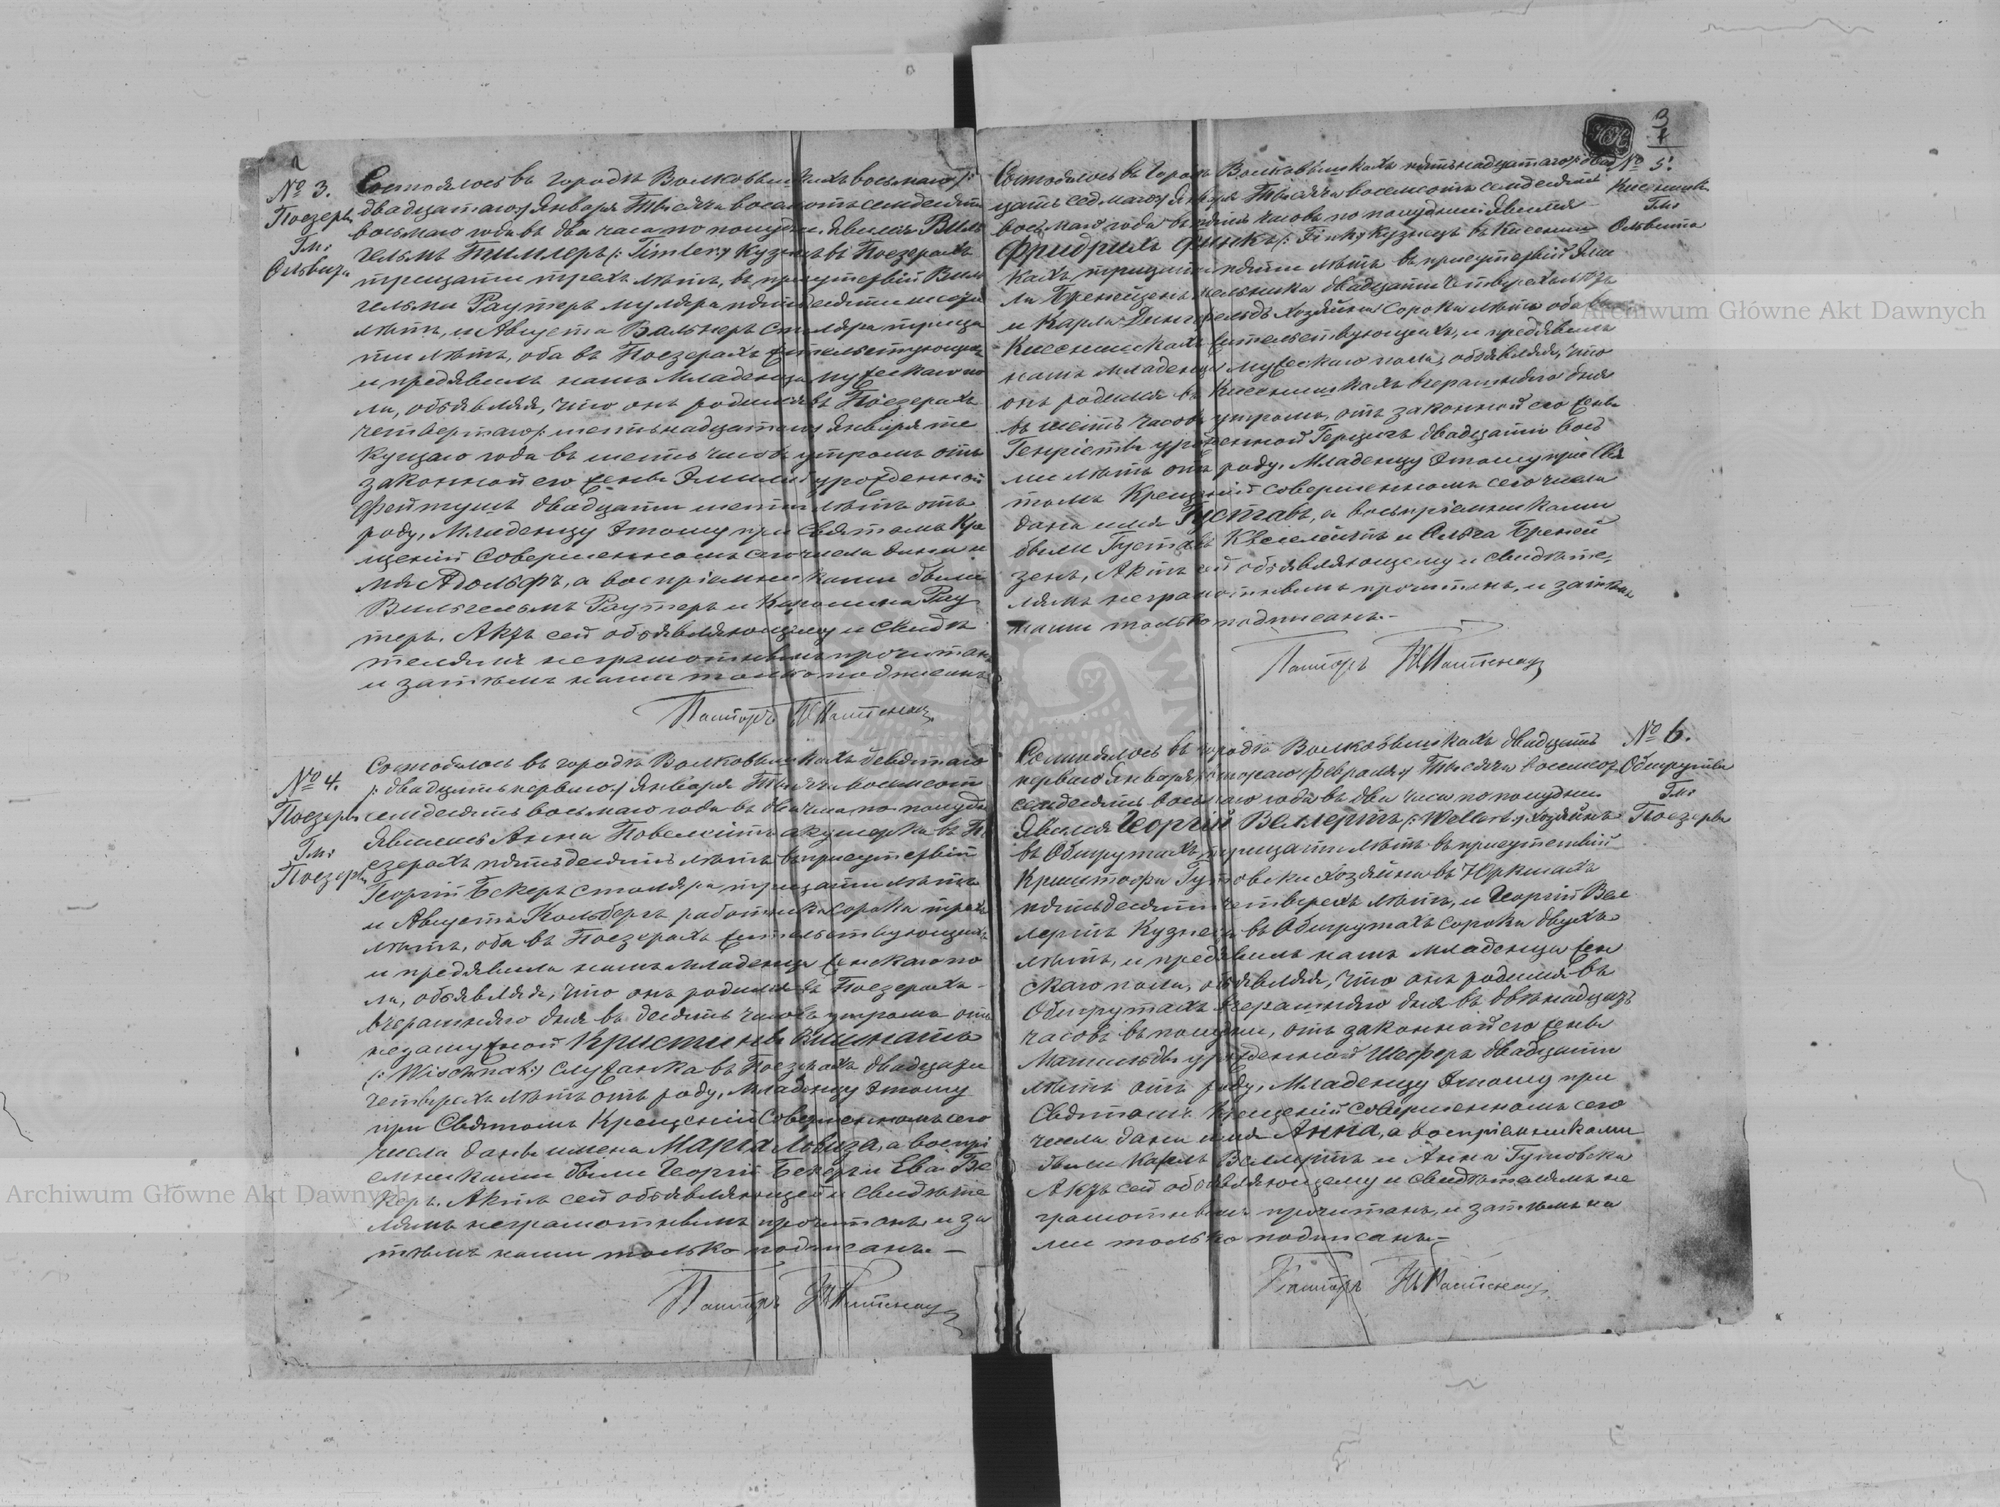 № 3.
Поезеры
Гм:
Ольвита
Состоялось въ городѣ Волковышкахъ восьмаго /:
двадцатаго:/ Января Тысяча восемьсотъ семьдесятъ
восьмаго года въ два часа по полудни. Явился Виль
гельмъ Тимлеръ /: Timler:/ Кузнецъ въ Поезерахъ
тридцати трехъ лѣтъ, въ присутствіи Виль
гельма Раутеръ муляра пятьдесяти шести
лѣтъ, и Августа Вальнеръ столяра тридца
ти лѣтъ, оба въ Поезерахъ жительствующихъ
и предявилъ намъ Младенца мужескаго по
ла, объявляя, что онъ родился въ Поезерахъ
четвертаго /: шестьнадцатаго:/ Января те
кущаго года въ шесть часовъ утромъ отъ
законной его жены Эмиліи урожденной
двадцати шести лѣтъ отъ
роду, Младенцу этому при Святомъ Кре
щеніи совершенномъ сего числа дано и
мя Адольфъ, а воспріемниками были
Вильгельмъ Раутеръ и Каролина Рау
теръ. Актъ сей объявляющему и свидѣ
телямъ неграмотнымъ прочитанъ
и затѣмъ нами только подписанъ
Пасторъ
№ 4.
Поезеры
Гм:
Поезеры
Состоялось въ городѣ Волковышкахъ девятаго
/: двадцать перваго:/ Января Тысяча восемсотъ
семдесятъ восьмаго года въ два часа по полудни
Явилась Анна Повелейтъ акушерка въ По
езерахъ, пятьдесятъ лѣтъ въ присутствіи
Георгій Бекеръ столяра тридцати лѣтъ
и Августъ Кольбергъ работника сорока трехъ
лѣтъ, оба въ Поезерахъ жительствующихъ
и предявила намъ младенца женскаго по
ла, объявляя, что онъ родился въ Поезерахъ
вчерашняго дня въ десять часовъ утромъ отъ
незамужной Кристины Вишнатъ
/: Wischnat:/ служанка въ Поезерахъ двадцати
четырехъ лѣтъ отъ роду, Младенцу этому
при Святомъ Крещеніи совершенномъ сего
числа даны имена Марія Ловиза, а воспрі
емниками были Георгій Бекеръ и Ева Бе
керъ. Актъ сей объявляющей и свидѣте
лямъ неграмотнымъ прочитанъ и за
тѣмъ нами только подписанъ. —
Пасторъ
3
№
5.
Гм:
Ольвита
Состоялось въ Городѣ Волковышкахъ пятьнадцатаго /: двад
цать седмаго:/ Января Тысяча восемсотъ семдесятъ
восьмаго года въ часовъ по полудни Явился
Фридрихъ Финкъ /: Fink:/ Кузнецъ въ
кахъ тридцати пяти лѣтъ въ присутствіи
мельника двадцати четырехъ лѣтъ
и Карла хозяйна сорока лѣтъ оба въ
жительствующихъ, и предявилъ
намъ младенца мужескаго пола, объявляя, что
онъ родился въ вчерашняго дня
въ шесть часовъ утромъ, отъ законной его жены
Генріеты урожденной Герцигъ двадцати вось
ми лѣтъ отъ роду, Младенцу этому при Свя
томъ Крещеніи совершенномъ сего числа
дано имя Густавъ, а воспріемниками
были Густавъ и Ольга Бреней
зенъ, Актъ сей объявляющему и свидѣте
лямъ неграмотнымъ прочитанъ, и затѣмъ
нами только подписанъ. —
Пасторъ
№ 6.
Обшруты
Гм:
Поезеры
Состоялось въ городѣ Волковышкахъ двадцать
перваго Января /: втораго:/ Февраля:/ Тысяча восемсотъ
семдесятъ восьмаго года въ два часа по полудни
Явился Георгій Веллертъ /: Wellert:/ хозяйнъ
въ Обшрутахъ, тридцати лѣтъ въ присутствіи
Криштофа Гутовски хозяйна въ Юркшахъ
пятьдесяти четырехъ лѣтъ, и Георгій Вел
лертъ Кузнеца въ Обшрутахъ сорока двухъ
лѣтъ, и предявилъ намъ младенца жен
скаго пола, объявляя, что онъ родился въ
Обшрутахъ вчерашняго дня въ двѣнадцать
часовъ въ полудни, отъ законной его жены
Матильды урожденной Шеферъ двадцати
лѣтъ отъ роду, Младенцу этому при
Святомъ Крещеніи совершенномъ сего
числа дано имя Анна, а воспріемниками
были Карлъ Веллертъ и Анна Гутовска
Актъ сей объявляющему и свидѣтелямъ не
грамотнымъ прочитанъ, и затѣмъ на
ми только подписанъ —
Пасторъ
Archiwum Główne Akt Dawnych
Archiwum Główne Akt Dawnych